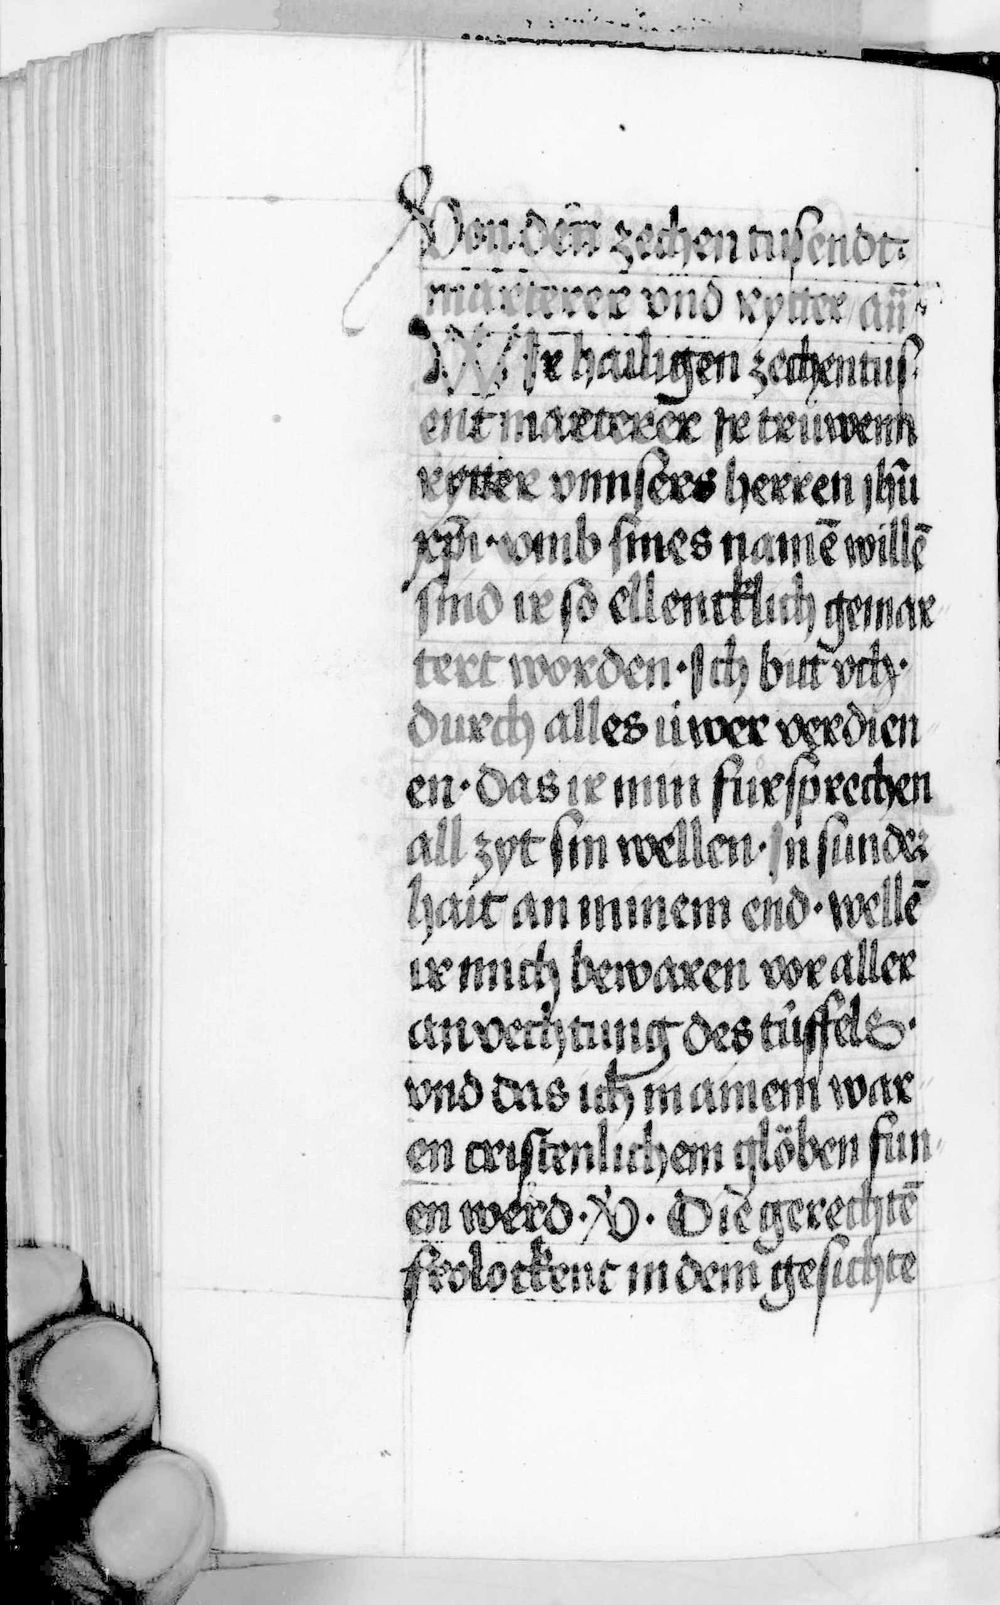 Von den̄ zechen tusendt
marterer vnd rytter / an̄
W Ir hailigen zechentus
ent marterer Ir trüwenn
rytter vnnsers herren jhū
xp̄i · vmb sines namē willē
sind ir so ellencklich gemar
tert worden · Ich bitt vch ·
durch alles üwer verdien
en · das ir min fürsprechen
all zyt sin wellen · In sunder
hait an minem end · wellē
ir mich bewaren vor aller
anvechtung des tüffels ·
vnd das ich in ainem war
en cristenlichem glöben fun
en werd · V · Die gerechtē
frolockent in dem gesichte